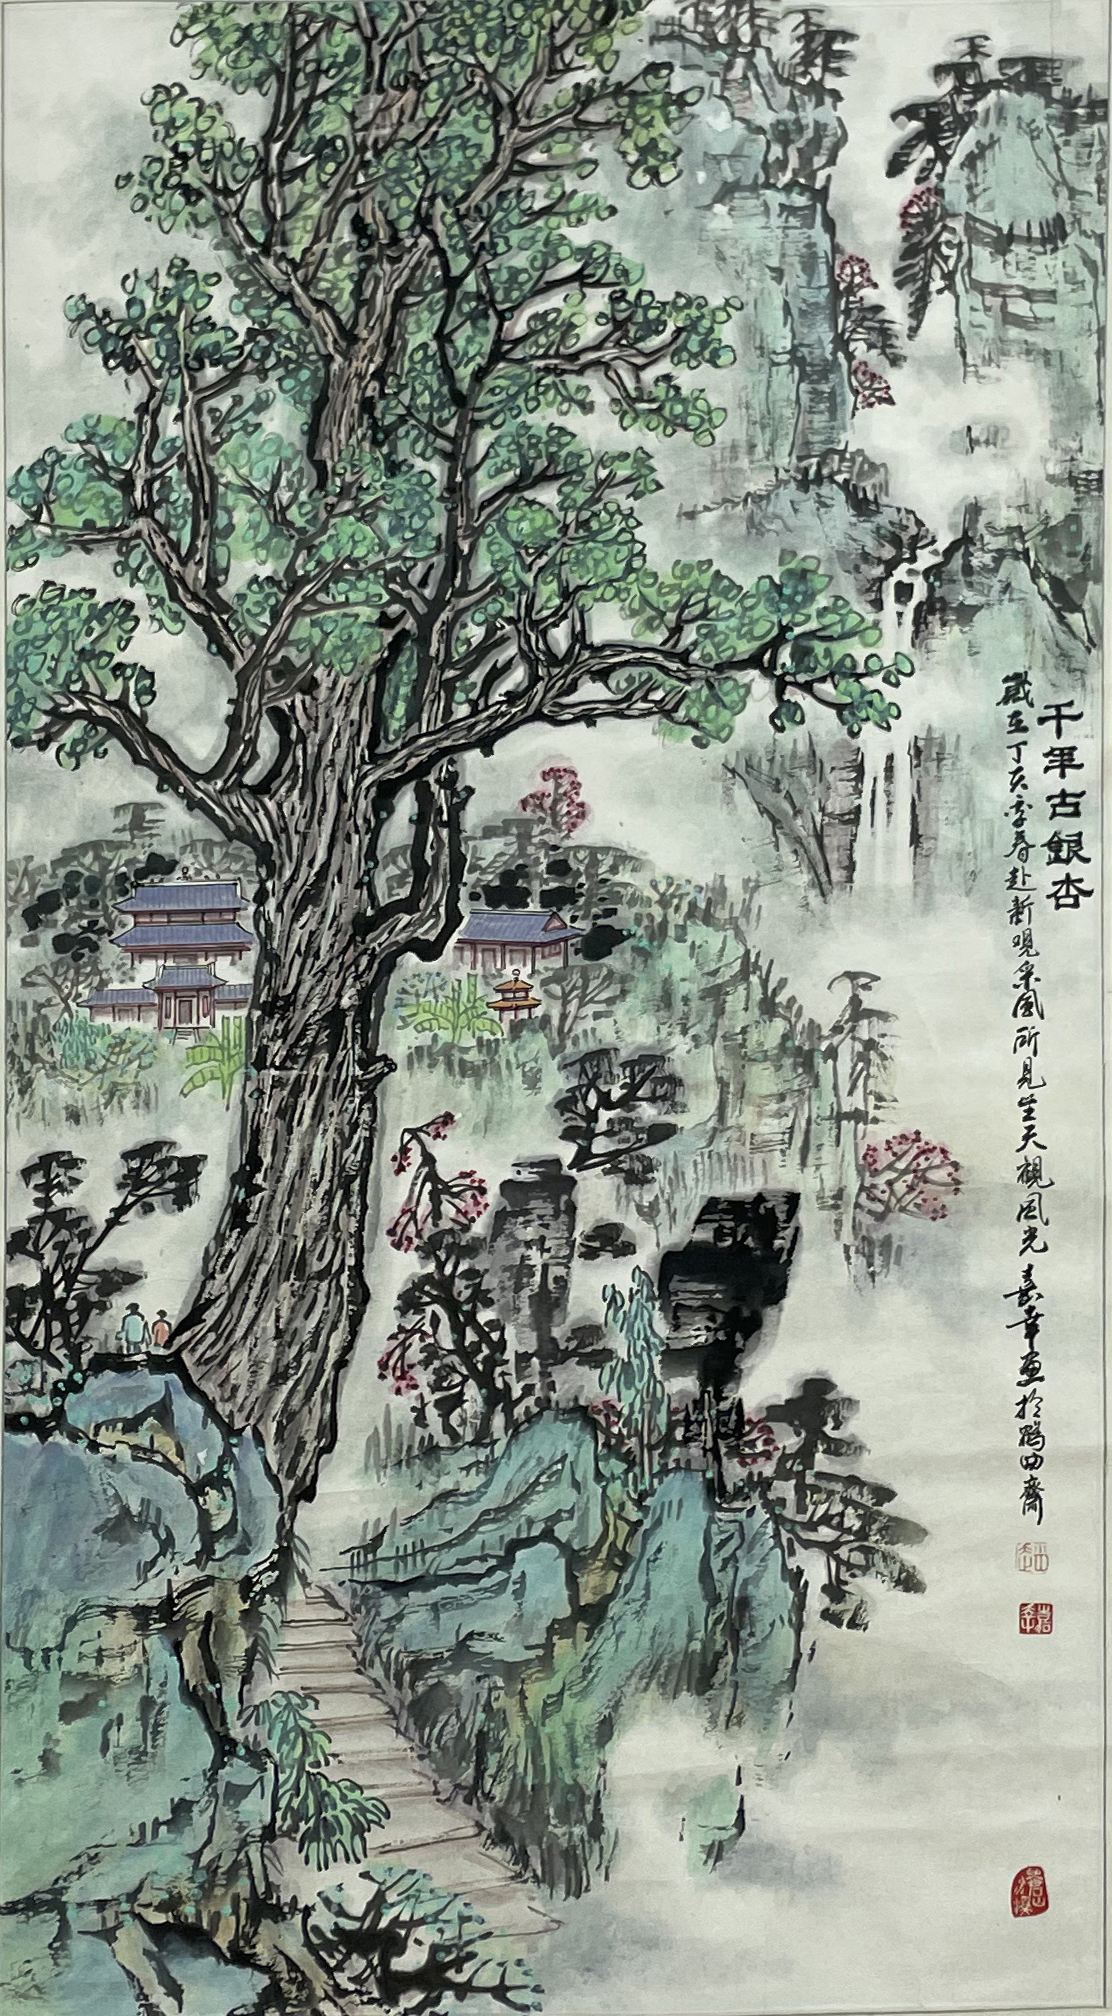 千年古銀杏
歲在丁亥季春赴新观采風所見生天觀風光嘉幸画於鶴田齋